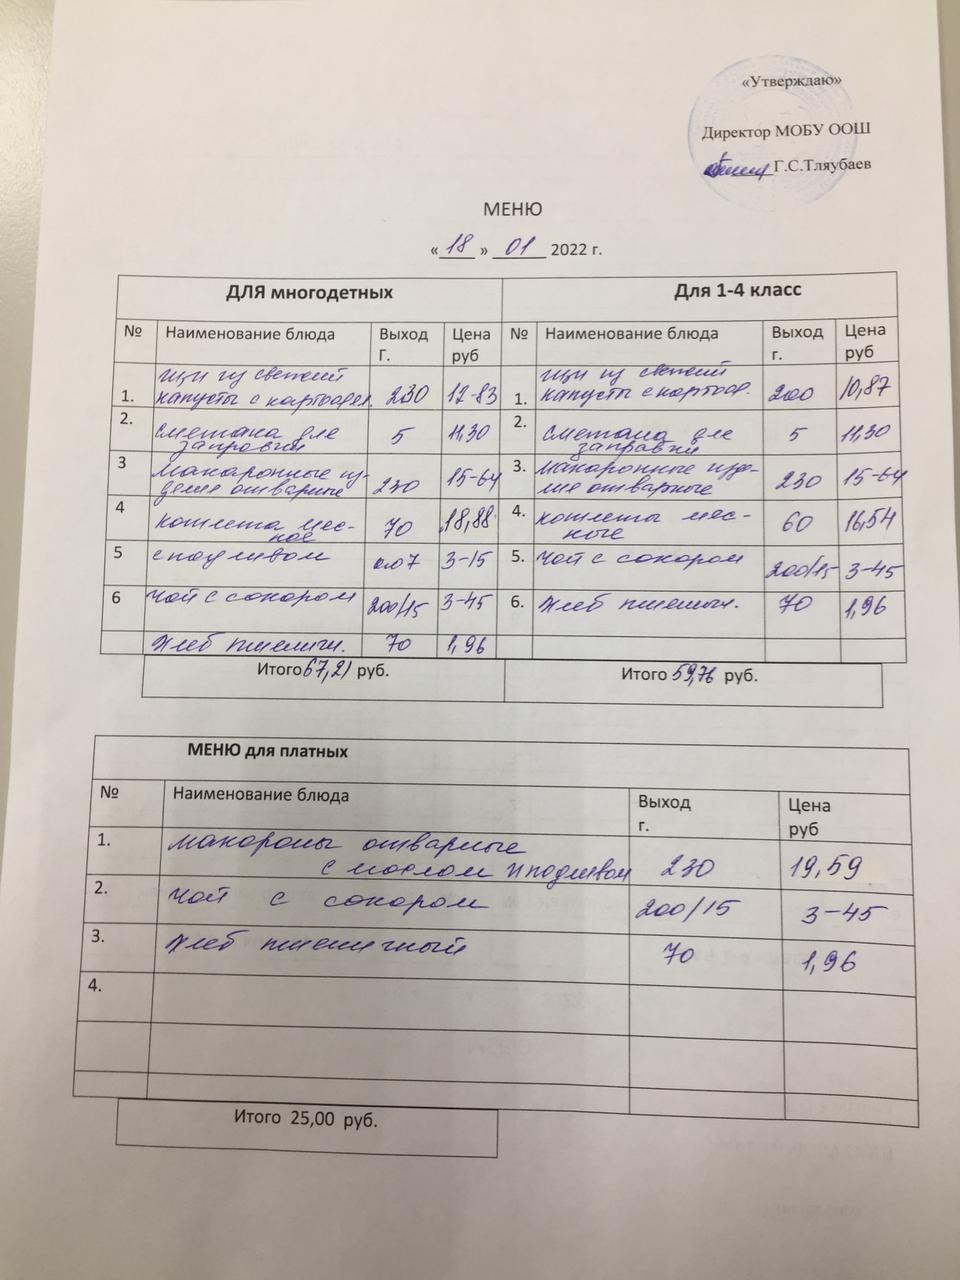 «Утверждаю»
Директор МОБУ ООШ
Г.С.Тляубаев
МЕНЮ
« 18 » 01 2022 г.
ДЛЯ многодетных Для 1-4 класс
№ Наименование блюда Выход Г. Цена руб № Наименование блюда Выход г. Цена руб
1. щи из свежей капусты с картофел. 230 12-83 1. щи из свежей капусты с картоф. 200 10,87
2. сметана для заправки 5 11,30 2. сметана для заправки 5 11,30
3 макаронные изделия отварные 230 15-64 3. макаронные изделия отварные 230 15-64
4 котлета мясное 70 18,88 4. котлеты мясные 60 16,54
5 с подливом 3-15 5. чай с сахаром 200/15 3-45
6 чай с сахаром 200/15 3-45 6. хлеб пшеничн. 70 1,96
хлеб пшеничн. 70 1,96
Итого 67,21 руб. Итого 59,76 руб.
МЕНЮ для платных
№ Наименование блюда Выход г. Цена руб
1. макароны отварные
с маслом и подливом 230 19,59
2. чай с сахаром 200/15 3-45
3. хлеб пшеничный 70 1,96
4.
Итого 25,00 руб.